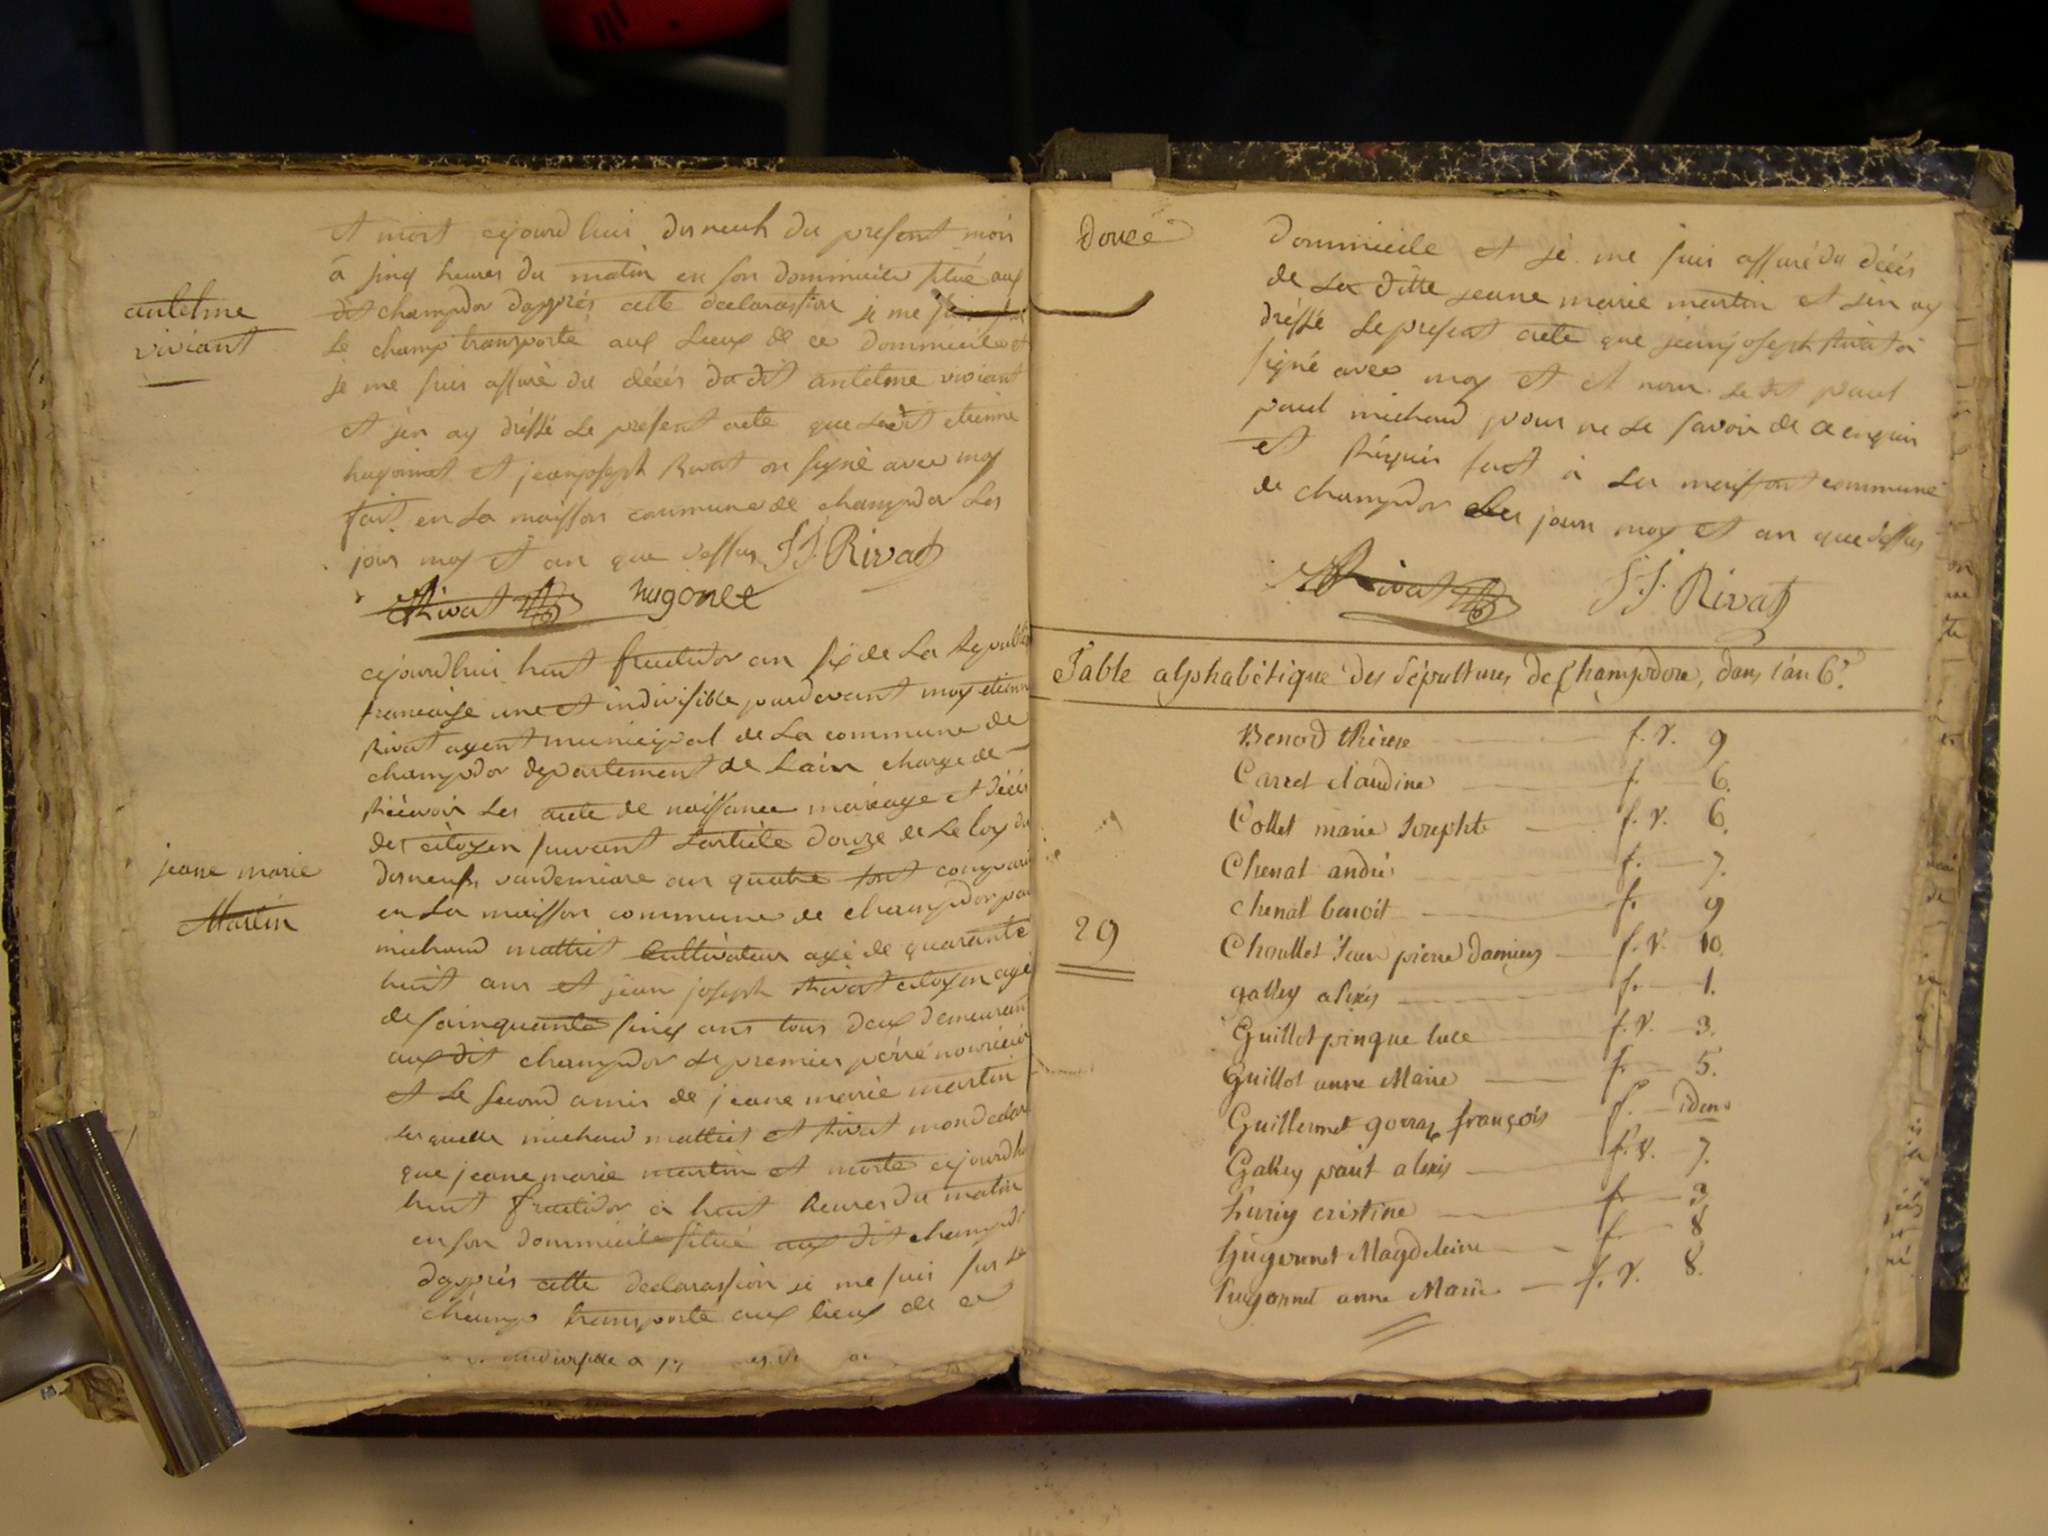 et mort cejourdhui disneuf du present mois
a sinq heures du matin en son dommicile situé aux
antelme
dit champdor dapprés cette declarassion je me suis sur
viviant
le champ transporté aux Lieux de ce dommicile et
je me suis assuré du décés dudit antelme viviant
et jen ay dréssé le present acte que ledit etienne
hugonnet et jeanjoseph Rivat on signé avec moy
fait en La maisson commune de champdor Les
jour moy et an que dessus J J Rivat
Rivat hugonet
cejourdhui huit fructidor an six de La Republique
francaise une et indivisible pardevant moy etienne
Rivat agent municipal de La commune de
champdor departement de Lain charge de
Récevoir Les acte de naissance mariage et décés
des citoyen suivant Lartiele douze de Le loy du
jeane marie
disneufs vandemiare an quatre sont comparu
Martin
en La maisson commune de champdor
michaud mattiet Cultivateur agé de quarante
huit ans et jean joseph Rivat citoyen agé
de sainquante sinq ans tous deux demeurant
aux dit champdor Le premier pérré nourricié
et Le second amis de jeane marie martin
Lesquelle michaud mattiet et Rivat mon declaré
que jeane marie martin et morte cejourdhui
huit fructidor a huit heures du matin
en son dommicile situé aux dit champdor
dapprés cette declarassion je me suis sur Le
champ transporté aux lieux de ce
douzé
dommicile et je me suis assuré du décés
de La ditte jeane marie martin et jen ay
dréssé Le present acte que jeanjoseph Rivat a
signé avec moy et et non Le dit paul
paul michaud pour ne Le savoir de ce enquis
et Réquis fait a La maisson commune
de champdor Les jour moy et an que dessus
Rivat J J Rivat
Table alphabétique des sépultures de Champdore, dans l'an 6.e
Benod thérese f. v. 9
Carret claudine f. 6.
Collet marie Josephte f. v. 6.
Chenat andré f. 7.
chenat benoit f. 9
29
Choullet Jean pierre Damien f. v. 10.
galley alexis f. 1.
Guillot pinque luce f. v. 3.
Guillot anne Marie f. 5.
Guillermet gorraz françois f. idem
Galley paul alexis f. v. 7.
hugonnet Magdeleine f. 8
hugonnet anne Marie f. v. 8.